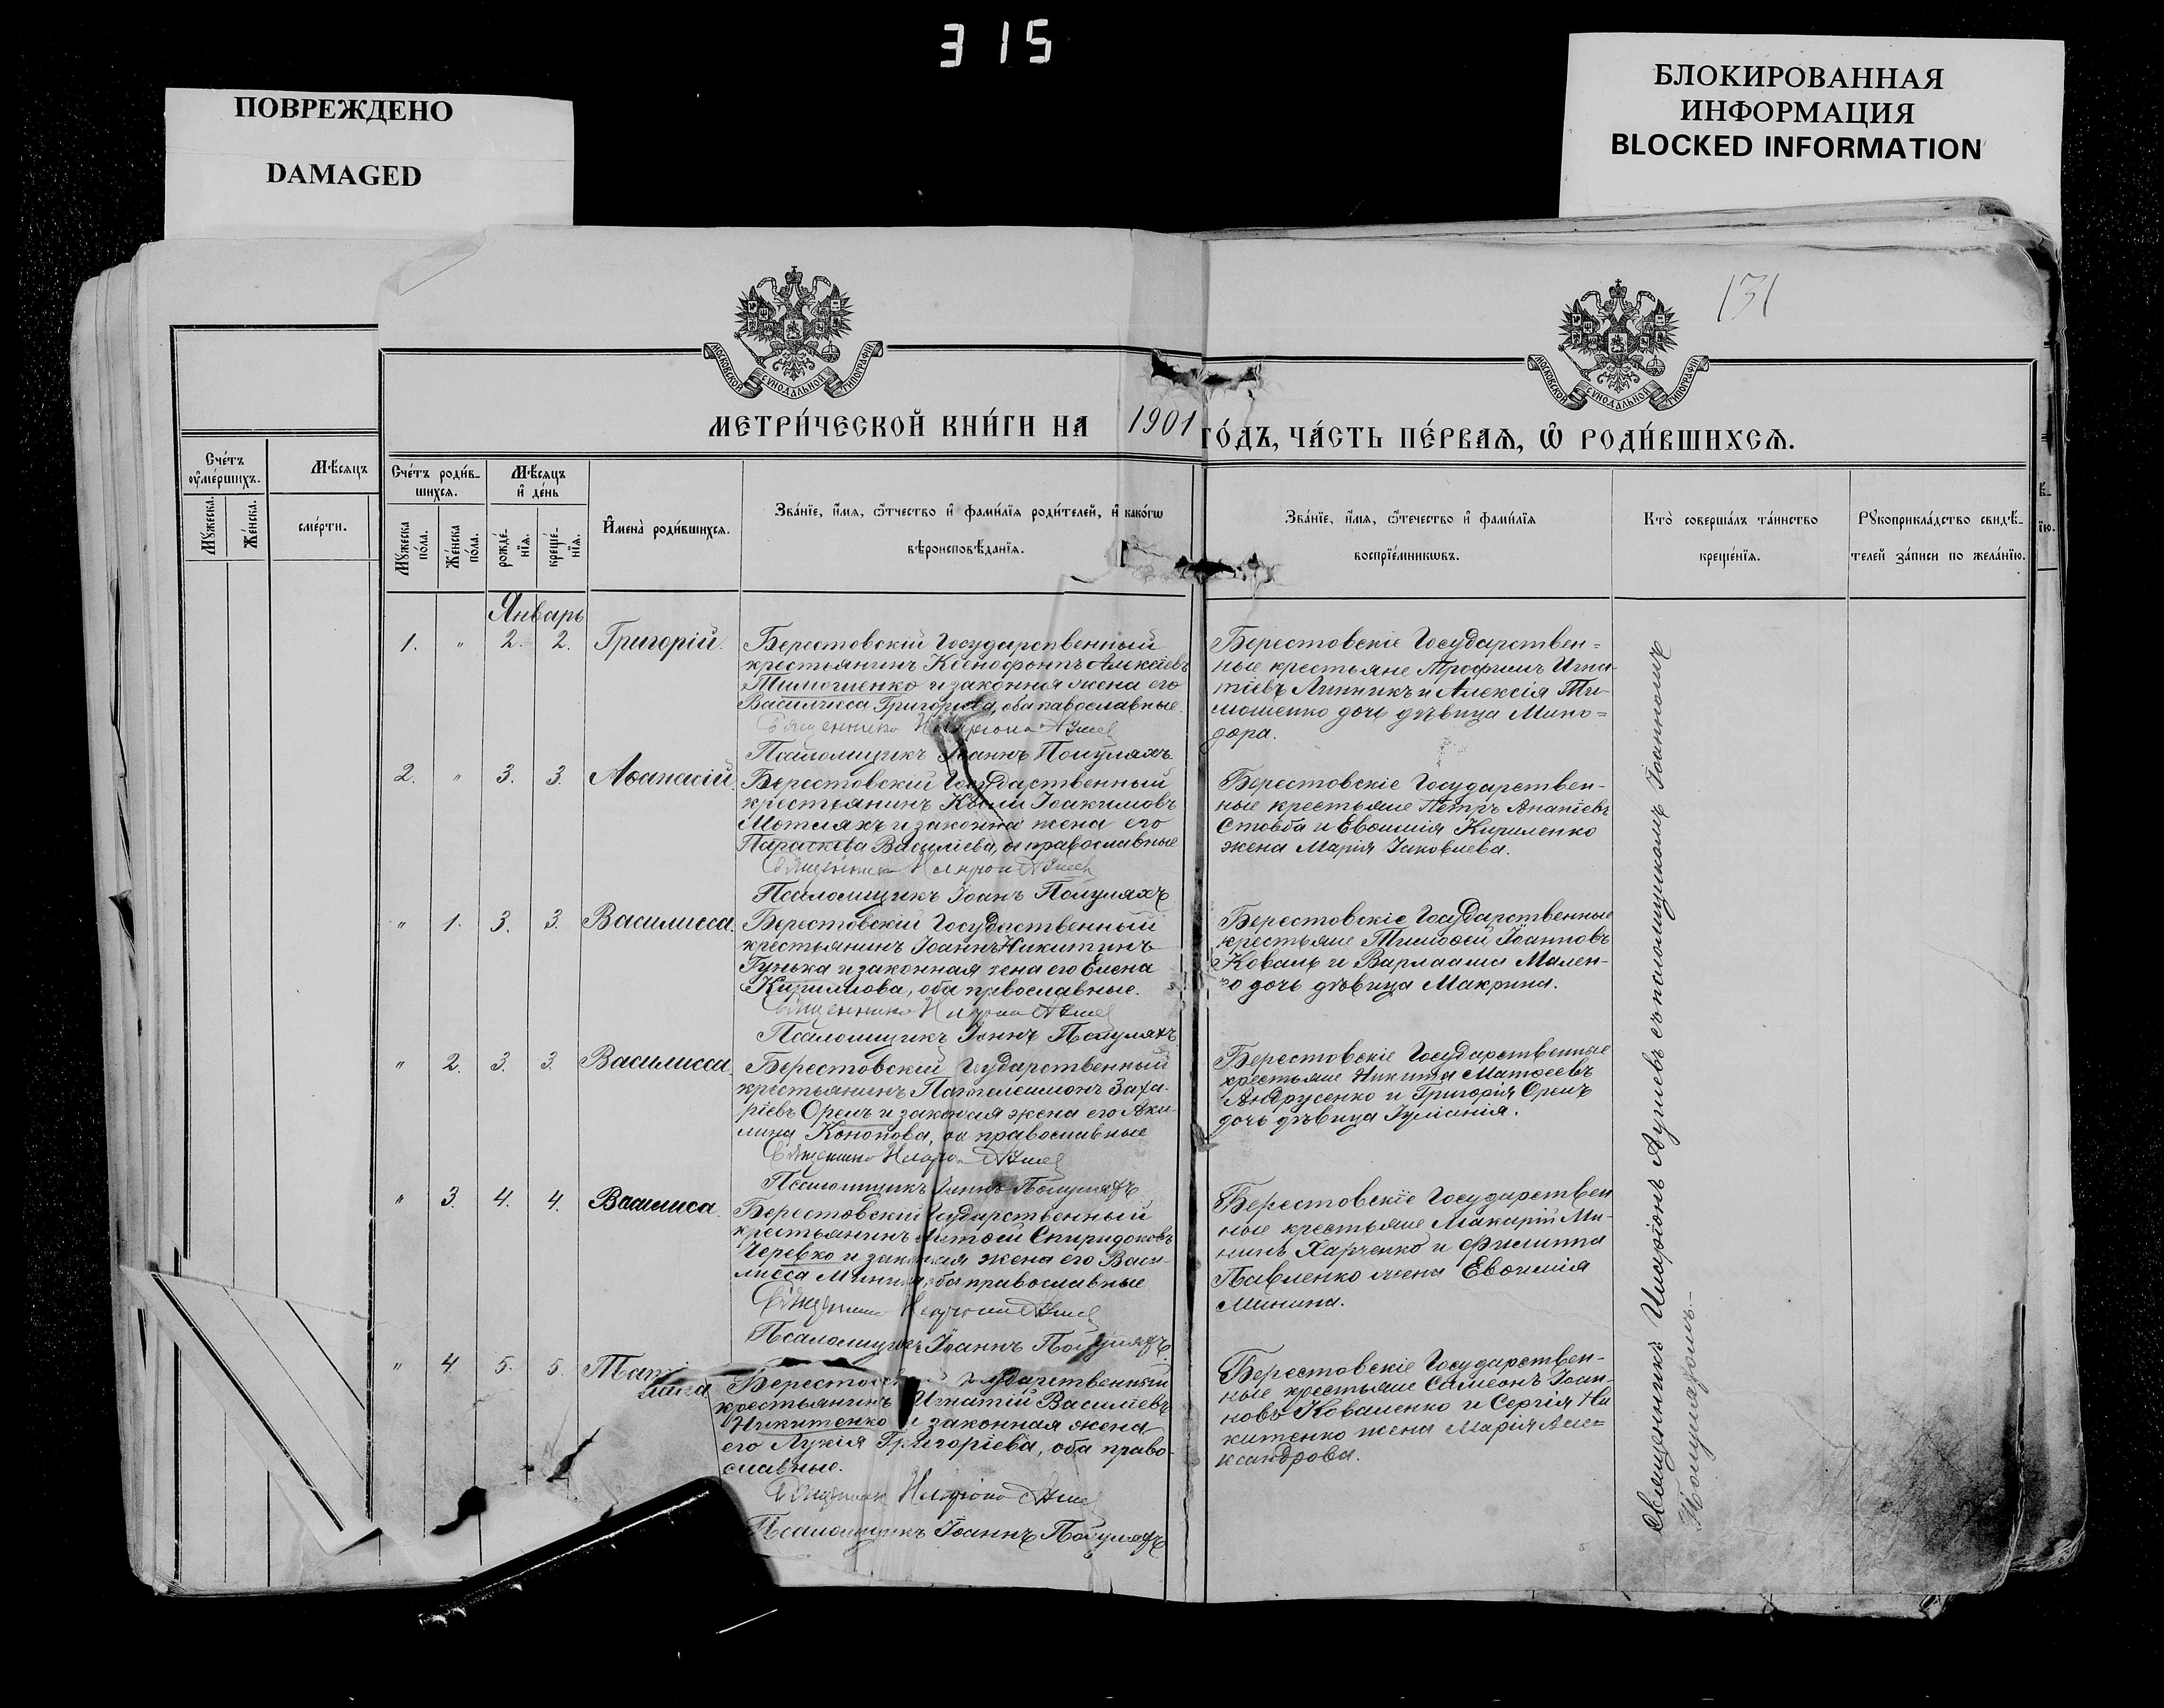 315
ПОВРЕЖДЕНО
DAMAGED
БЛОКИРОВАННАЯ
ИНФОРМАЦИЯ
BLOCKED INFORMATION
131
МОСКОВСКОЙ СУНОДАЛЬНОЙ ТИПОГРАФІИ
МОСКОВСКОЙ СУНОДАЛЬНОЙ ТИПОГРАФІИ
МЕТРИ́ЧЕСКОЙ КНИ́ГИ НА 1901 ГО́ДЪ, ЧА́СТЬ ПЕ́РВАѦ, Ѡ РОДИ́ВШИХСѦ.
Сче́тъ
ᲂу҆ме́ршихъ.
Мꙋжеска.
Же́нска.
Мѣсяцъ
сме́рти.
Сче́тъ роди́в-
шихся.
Мꙋжеска
по́ла.
Же́нска
по́ла.
Мѣсяцъ
и҆ де́нь
рожде-
нїя.
креще́-
нїя.
И҆мена̀ роди́вшихся.
Зва́нїе, и҆́мя, ѻ҆́тчество и҆ фами́лїя роди́телей, и҆ како́гѡ
вѣроисповѣ́данїя.
Зва́нїе, и҆́мя, ѻ҆те́чество и҆ фами́лїя
воспрїе́мникѡвъ.
Кто̀ соверша́лъ та́инство
креще́нїя.
Рꙋкоприкла́дство свидѣ́-
телей за́писи по жела́нїю.
Январь
1. " 2. 2. Григорій.
Берестовскій Государственный
крестьянинъ Ксенофонтъ Алексіевъ
Тимошенко и законная жена его
Василисса Григоріева, оба павославные.
Псаломщикъ Іоаннъ Полуляхъ
Берестовскіе Государствен=
ные крестьяне Трофимъ Игна-
тіевъ Линникъ и Алексія Ти-
мошенко дочь дѣвица Мино=
дора.
2. " 3. 3. Аѳанасій.
Берестовскій Государственный
крестьянинъ Іоакимовъ
Мотляхъ и законна жена его
Параскева Василіева, православные
Псаломщикъ Іоанъ Полуляхъ
Берестовскіе Государствен-
ные крестьяне Петръ Ананіевъ
Стовба и Евѳимія Кириленко
жена Марія Іаковлева.
" 1. 3. 3. Василисса.
Берестовскій Государственный
крестьянинъ Іоаннъ Никитинъ
Гунька и законная жена его Елена
Кириллова, оба православные.
Псаломщикъ Полуляхъ
Берестовскіе Государственные
крестьяне Тимоѳей Іоанновъ
Коваль и Варлаама Мален-
ко дочь дѣвица Макрина.
" 2. 3. 3. Василисса.
Берестовскій Государственный
крестьянинъ Пантелеимонъ Заха-
ріевъ Орелъ и законная жена его Аки-
лина Кононова, православные
Псаломщикъ Полуляхъ
Берестовскіе Государственные
крестьяне Никита Матѳеевъ
Андрусенко и Григорія Орелъ
дочь дѣвица Іуліанія.
" 3. 4. 4. Василиса.
Берестовскій Государственный
крестьянинъ Спиридоновъ
Черевко и законная жена его Васи-
лисса Минина, оба православные
Псаломщикъ Іоаннъ Полуляхъ
Берестовскіе Государствен
ные крестьяне Макарій Ми-
нинъ Харченко и Филиппа
Павленко жена Евѳимія
Минина.
" 4. 5. 5.
Берестовскій Государственный
крестьянинъ Игнатій Василіевъ
Никитенко и законная жена
его Лукія Григоріева, оба право-
славные.
Псаломщикъ Іоаннъ Полуляхъ
Берестовскіе Государствен-
ные крестьяне Симеонъ Іоан-
новъ Коваленко и Сергія Ни
китенко жена Марія Але=
ксандрова.
Священникъ Иларіонъ съ псаломщикомъ Іоанномъ
Полуляхомъ.-